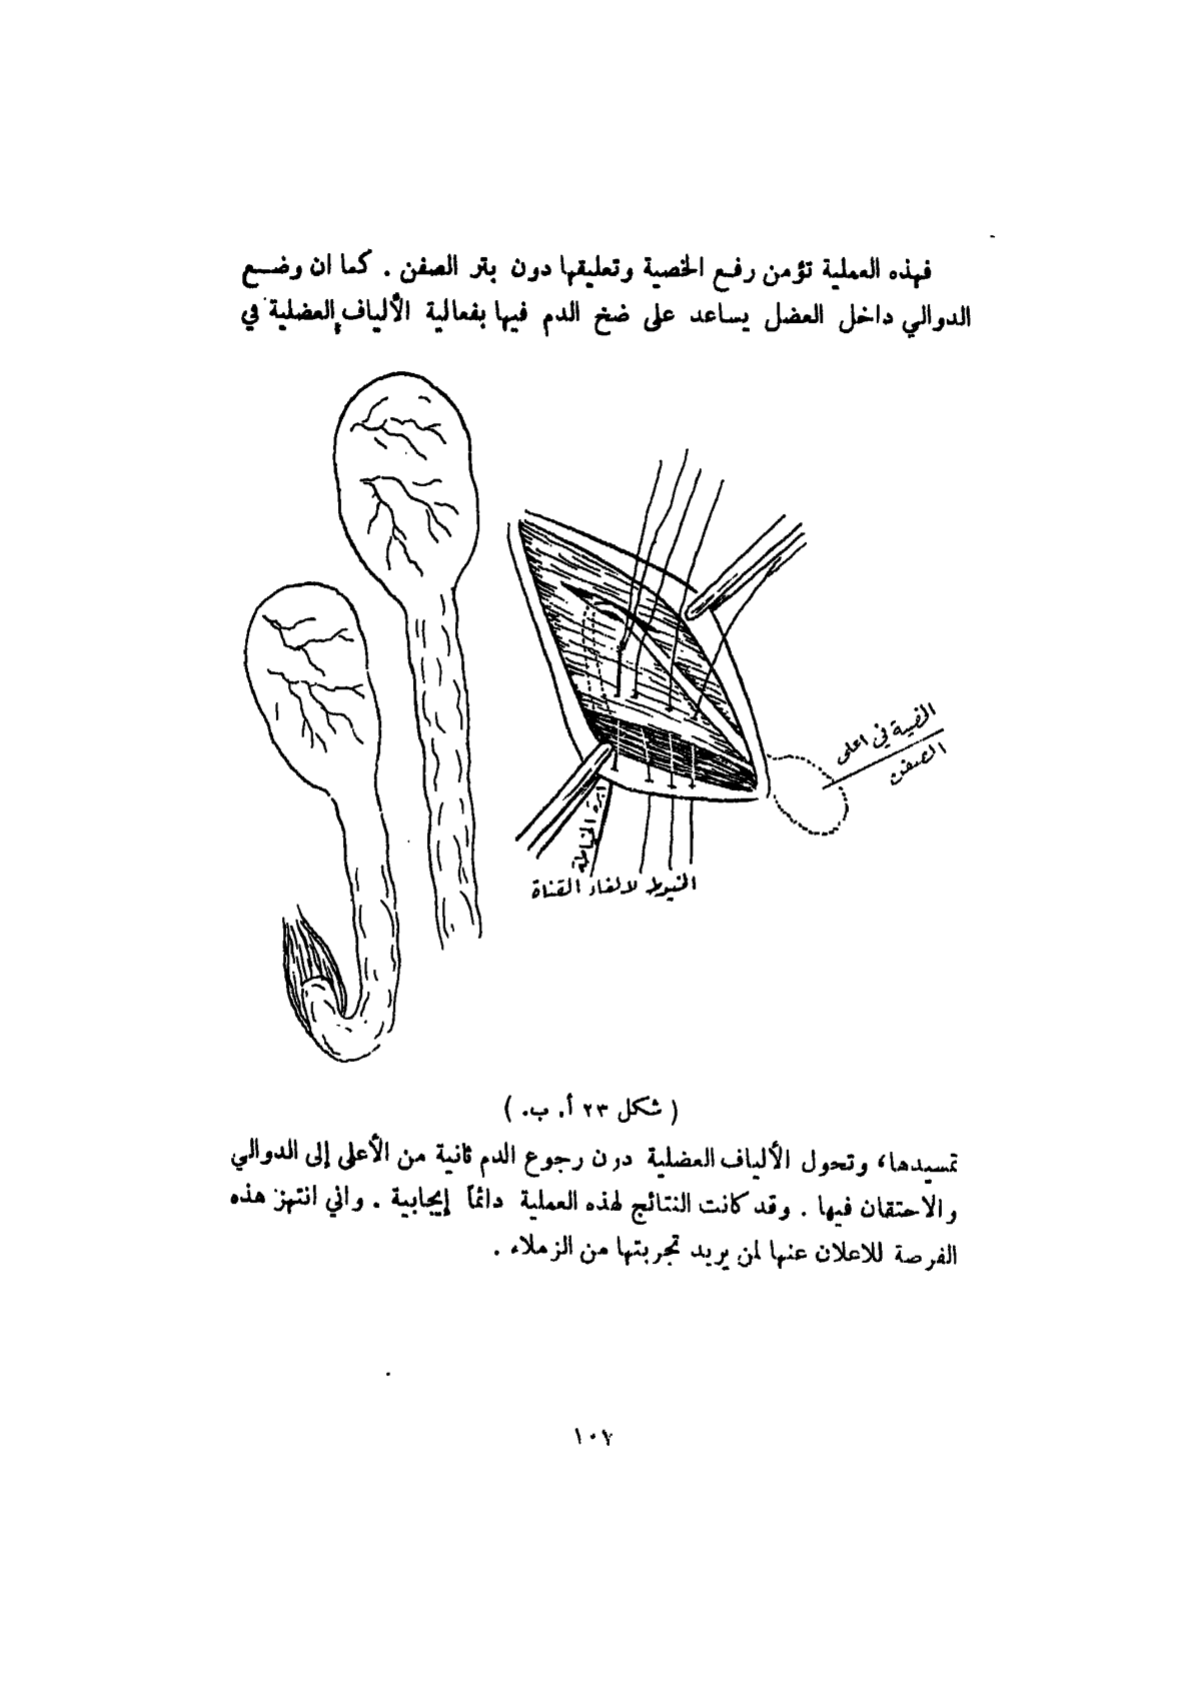 فهذه العملية تؤمن رفع الخصية وتعليقها دون بتر الصفن . كما ان وضع
الدوالي داخل العضل يساعد على ضخ الدم فيها بفعالية الألياف العضلية في
الخصية في اعلى
الصفن
ابرة الخياطة
الخيوط لالغاء القناة
( شكل ٢٣ أ. ب. )
تمسيدها، وتحول الألياف العضلية درن رجوع الدم ثانية من الأعلى إلى الدوالي
والاحتقان فيها . وقد كانت النتائج لهذه العملية دائماً إيجابية . واني انتهز هذه
الفرصة للاعلان عنها لمن يريد تجربتها من الزملاء .
١٠٧